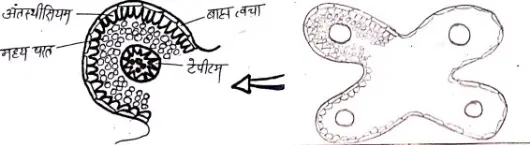 अंतस्थीसियम
बाह्य त्वचा
मध्य परत
टेपीटम